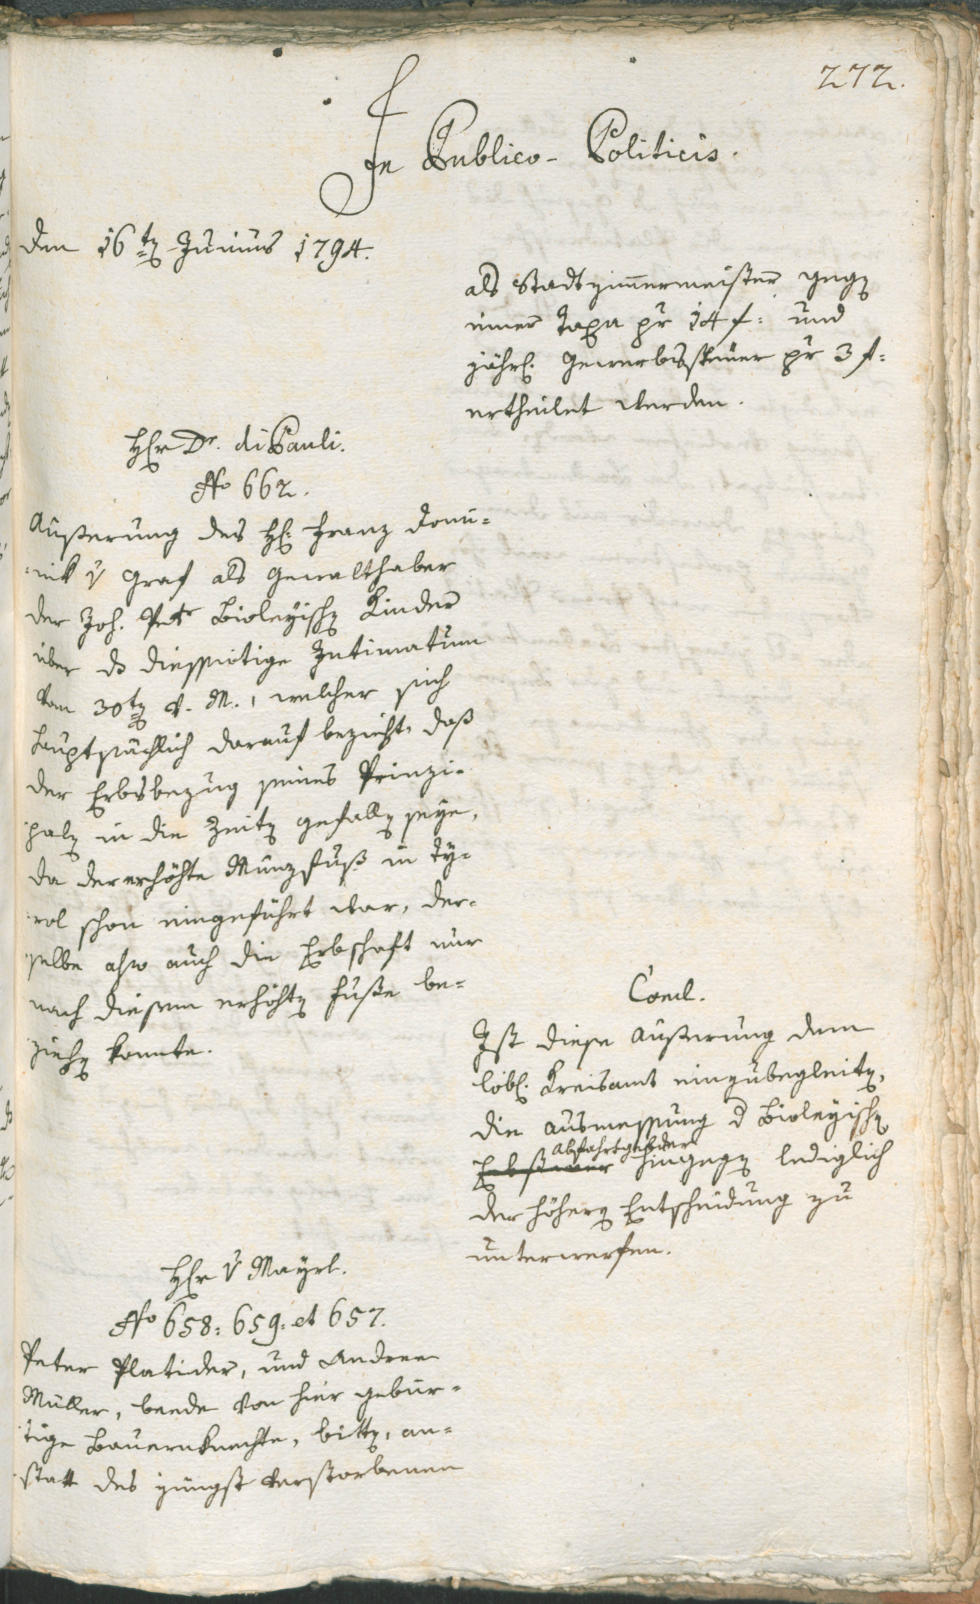 272.
In Publico-Politicis.
den 16tn Junius 1794.
als Stadtzimmermeister gegn
einer Taxa pr 14 f: und
jährl. Gewerbssteuer pr 3 f:
ertheilet werden.
Hr Dr. di Pauli.
No 662.
Äußerung des H: Franz Domi=
=nik v Graf als Gewalthaber
der Joh. Pet. Bioleyischn Kinder
über ds diessortige Intimatum
vom 30tn v. M., welcher sich
hauptsächlich darauf bezieht, daß
der Erbsbezug seines Prinzi=
paln in die Zeitn gefalln seye,
da der erhöhte Münzfuß in Ty=
rol schon eingeführt war, der=
selbe also auch die Erbschaft nur
nach diesem erhöhtn Fuße be=
ziehn konnte.
Concl.
Ist diese Äußerung dem
löbl. Kreisamt einzubegleitn,
die Ausmessung d Bioleyischn
Abfahrtgelder
hingegn lediglich
der höhern Entscheidung zu
unterwerfen.
Hr v Mayrl.
No 658: 659: et 657.
Peter Platider, und Andree
Müller, beede von hier gebür=
tige Bauernknechte, bittn, an=
statt des jüngst verstorbenen